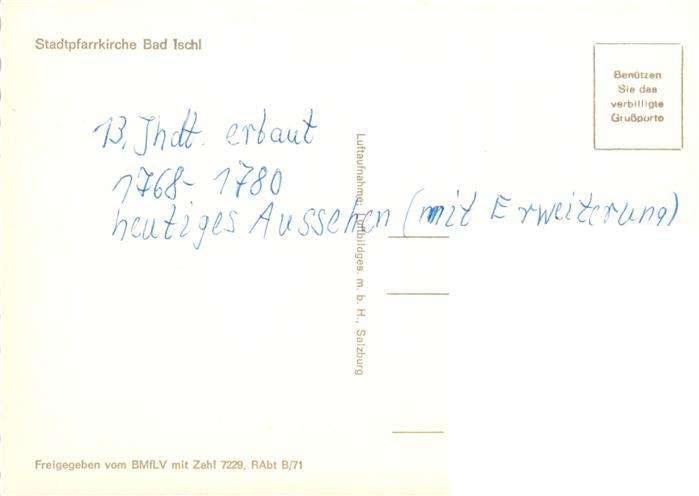 Stadtpfarrkirche Bad Ischl
Benützen
Sie das
verbilligte
Grußporto
13. Jhdt. erbaut
1768-1780
heutiges Aussehen (mit Erweiterung)
Luftaufnahme: Luftbildges. m. b. H., Salzburg
Freigegeben vom BMfLV mit Zahl 7229, RAbt B/71